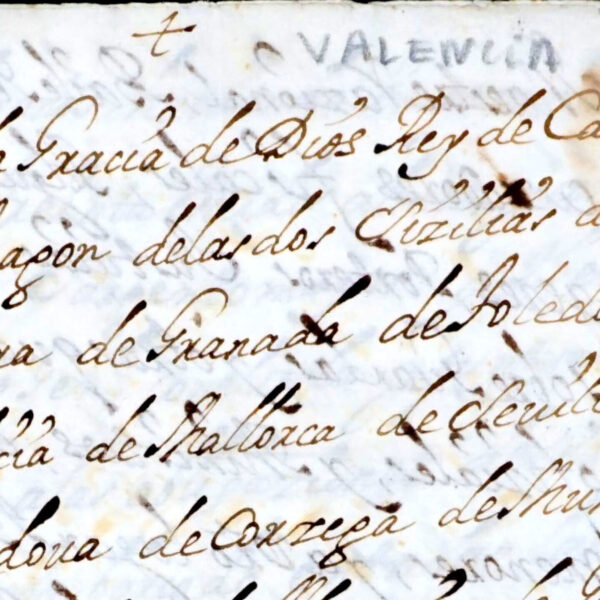 + VALENCIA
Gracia de Dios Rey de Ca
agon de las dos Sizilias d
ra de Granada de Toledo
cia de Mallorca de Sevill
dova de Corzega de Mur